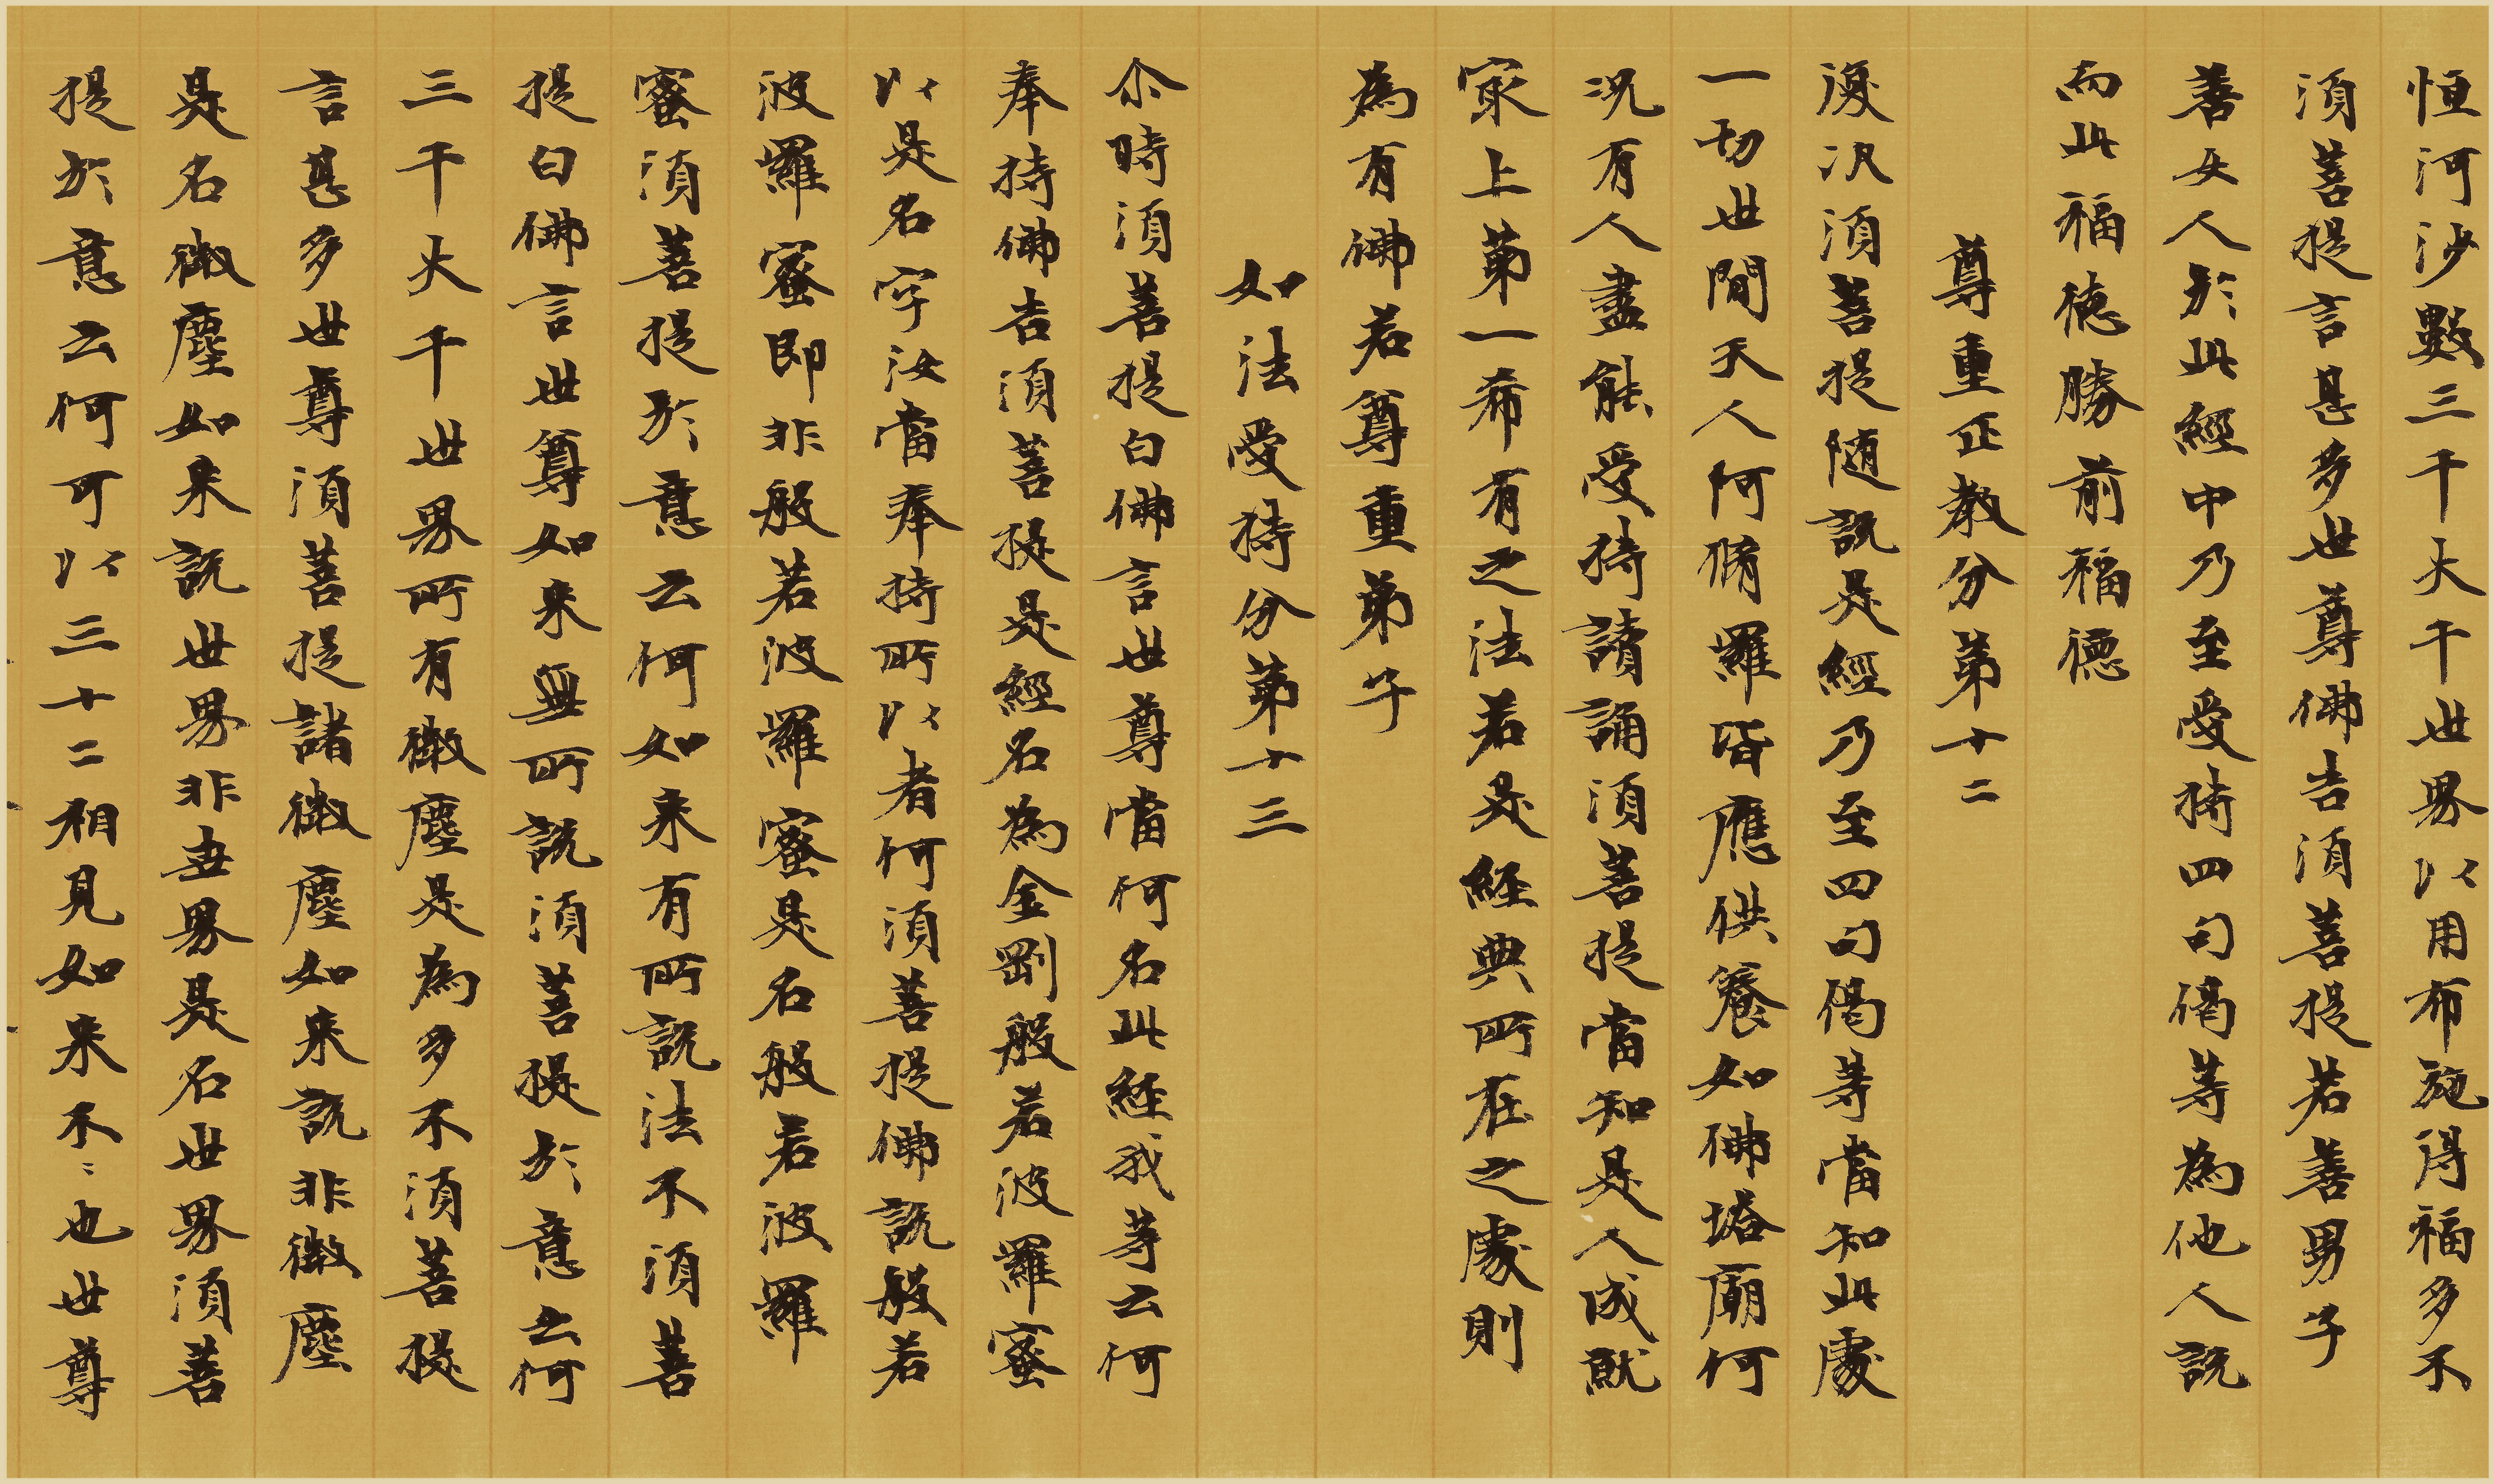 恒河沙數三千大千世界以用布施得福多不
須菩提言甚多世尊佛告須菩提若善男子
善女人於此經中乃至受持四句偈等為他人説
而此福德勝前福德
尊重正教分第十二
復次須菩提随説是經乃至四句偈等當知此處
一切世間天人阿脩羅皆應供養如佛塔廟何
況有人盡能受持讀誦須菩提當知是人成就
冣上第一希有之法若是経典所在之處則
為有佛若尊重弟子
如法受持分第十三
尒時須菩提白佛言世尊當何名此経我等云何
奉持佛告須菩提是經名為金剛般若波羅蜜
以是名字汝當奉持所以者何須菩提佛説般若
波羅蜜即非般若波羅蜜是名般若波羅
蜜須菩提於意云何如来有所説法不須菩
提白佛言世尊如来無所説須菩提於意云何
三千大千世界所有微塵是為多不須菩提
言甚多世尊須菩提諸微塵如来説非微塵
是名微塵如来説世界非世界是名世界須菩
提於意云何可以三十二相見如来不〻也世尊